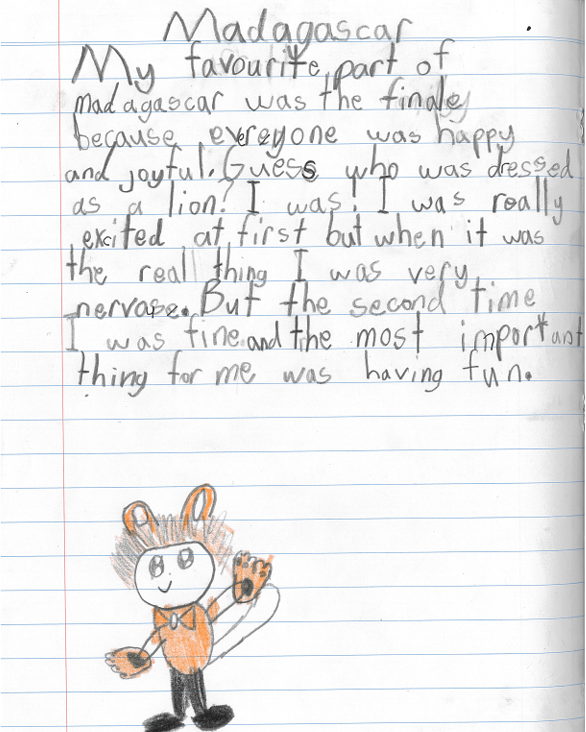 Madagascar
My favourite part of
madagascar was the finale
because evereyone was happy
and joyful. Guess who was dressed
as a lion? I was! I was really
excited at first but when it was
the real thing I was very
nervose. But the second time
I was fine and the most important
thing for me was having fun.